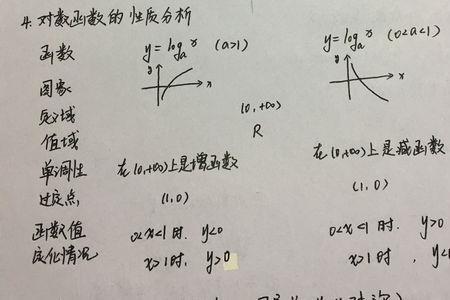 4. 对数函数的性质分析
函数 y=logₐx (a>1) y=logₐx (0<a<1)
图象 y x y x
定义域 (0,+∞)
值域 R
单调性 在(0,+∞)上是增函数 在(0,+∞)上是减函数
过定点 (1,0) (1,0)
函数值 0<x<1时, y<0 0<x<1时, y>0
变化情况 x>1时, y>0 x>1时, y<